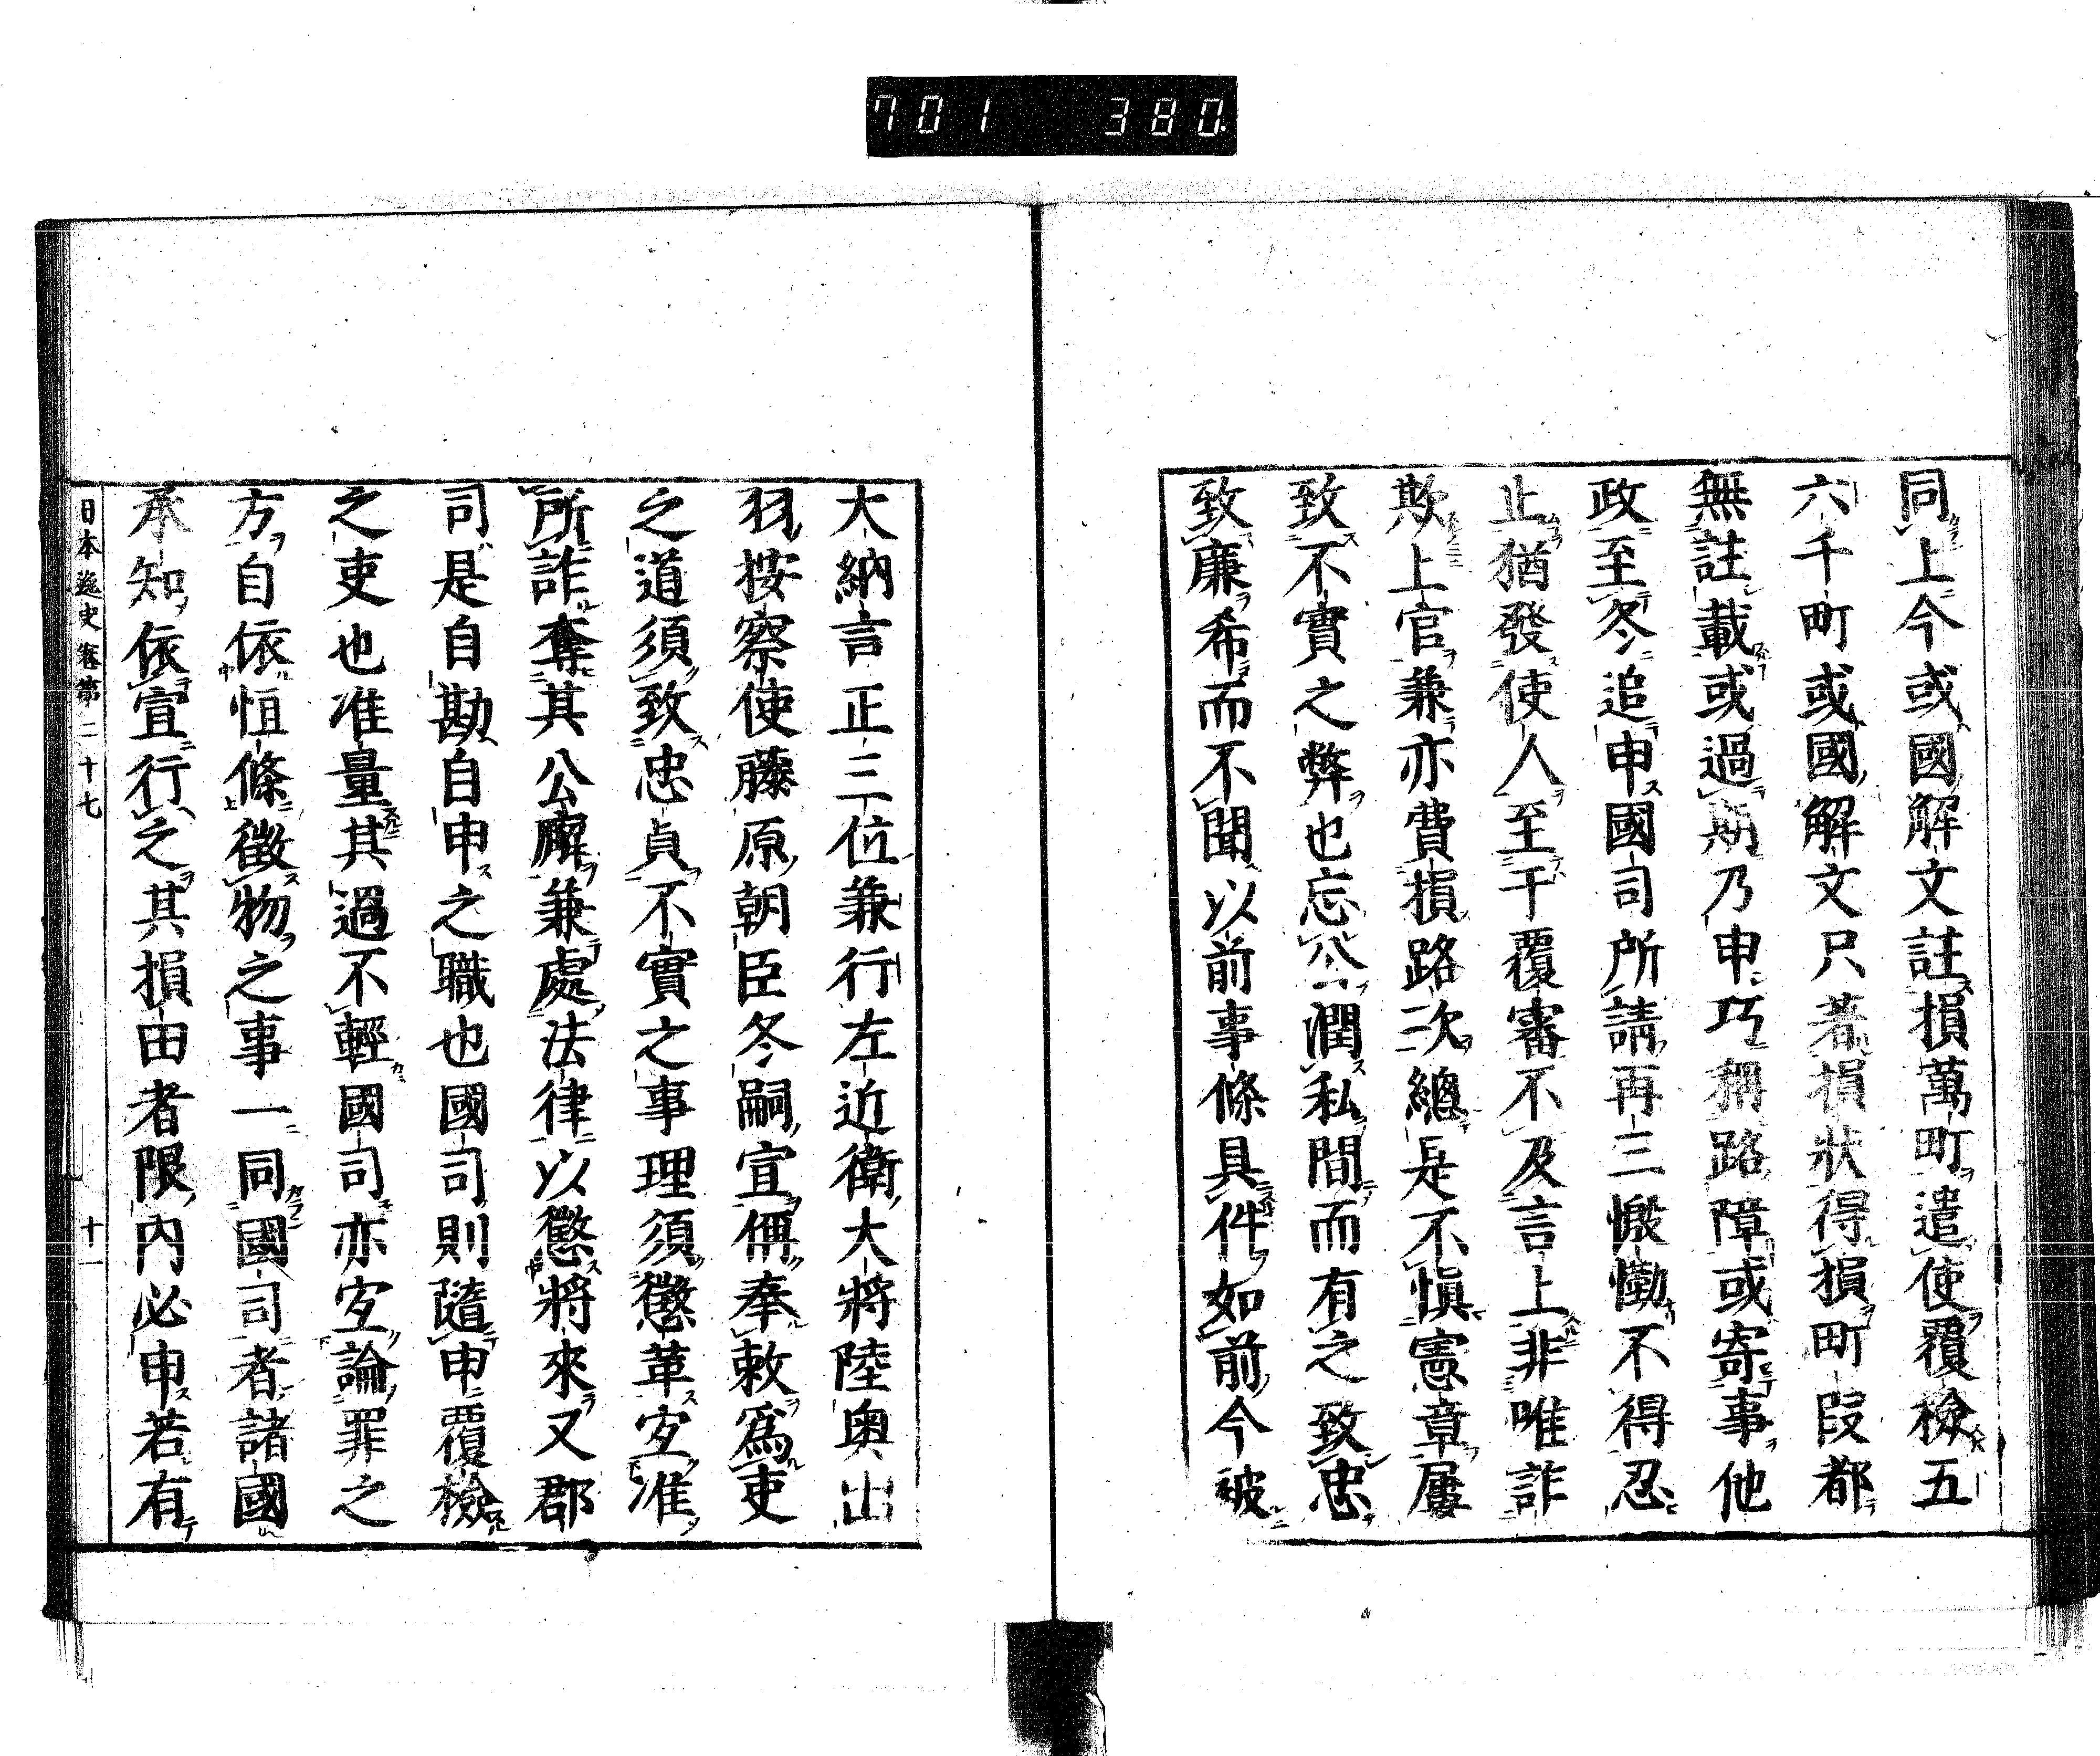 701 380
同上今或國解文註損萬町遣使覆檢五
六千町或國解文只著損狀得損町段都
無註載或過期乃申巧稱路障或寄事他
政至冬追申國司所請再三慇懃不得忍
止猶發使人至干覆審不及言上非唯詐
欺上官兼亦費損路次總是不愼憲章屢
致不實之弊也忘公潤私間而有之致忠
致廉希而不聞以前事條具件如前今被
大納言正三位兼行左近衛大將陸奧出
羽按察使藤原朝臣冬嗣宣偁奉敕爲吏
之道須致忠貞不實之事理須懲革宜准
所詐奪其公廨兼處法律以懲將來又郡
司是自勘自申之職也國司則隨申覆檢
之吏也准量其過不輕國司亦宜論罪之
方自依恒條徵物之事一同國司者諸國
承知依宣行之其損田者限內必申若有
日本逸史卷第二十七 十一